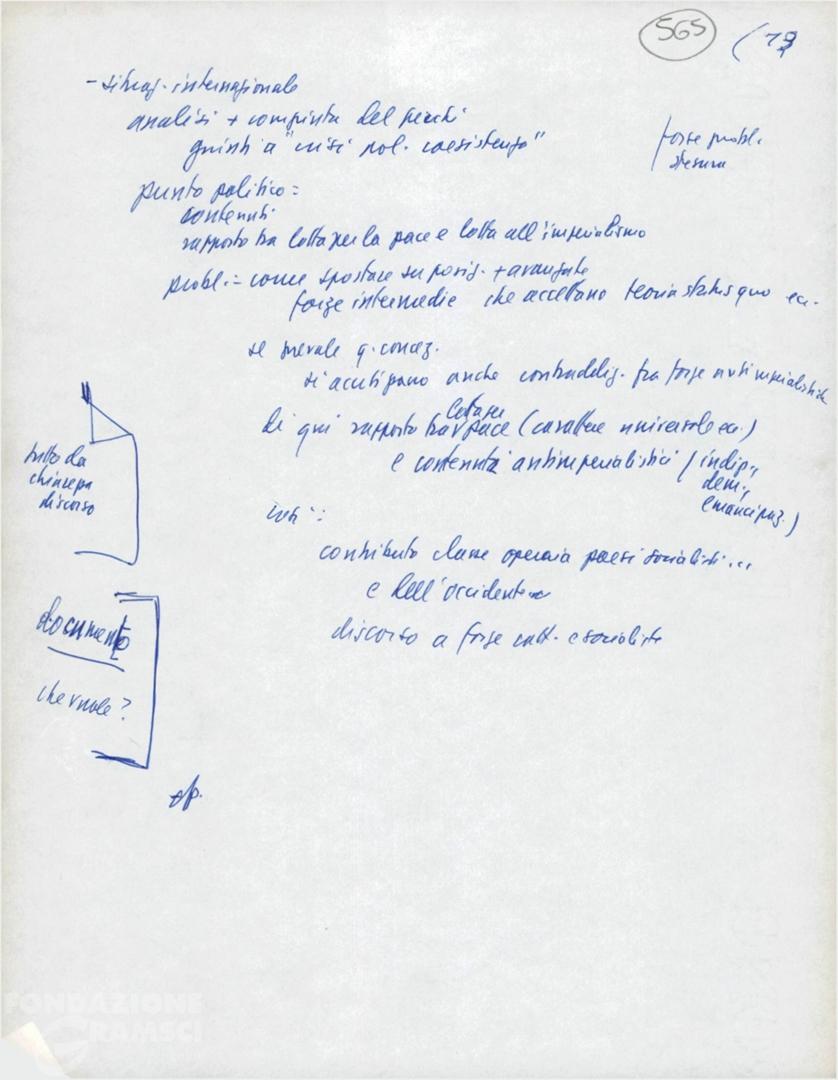 565
(79
- situaz. internazionale
analisi + compiuta del perché
giunti a "crisi pol. coesistenza"
forse probl.
stesura
punto politico =
contenuti
rapporto tra lotta per la pace e lotta all'imperialismo
probl. = come spostare su posiz. + avanzate
forze intermedie che accettano teoria status quo ecc.
se prevale q. concez.
si acutizzano anche contraddiz. fra forze antimperialistiche
di qui rapporto tra lotta per pace (carattere universale ecc.)
e contenuti antimperialistici (indip.,
dem.,
emancipaz.)
tutto da
discorso
così:
contributo classe operaia paesi socialisti...
e dell'occidente
discorso a forze catt. e socialiste
documento
che vuole?
FONDAZIONE
GRAMSCI